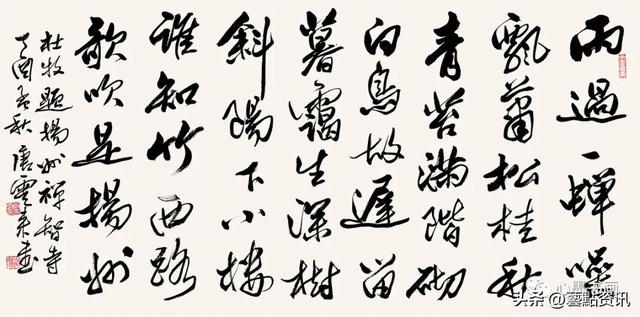 雨過一蟬噪
飄蕭松桂秋
青苔滿階砌
白鳥故遲留
暮靄生深樹
斜陽下小樓
誰知竹西路
歌吹是揚州
杜牧題揚州禪智寺
丁酉孟秋唐雲來書
头条 @藝點资讯